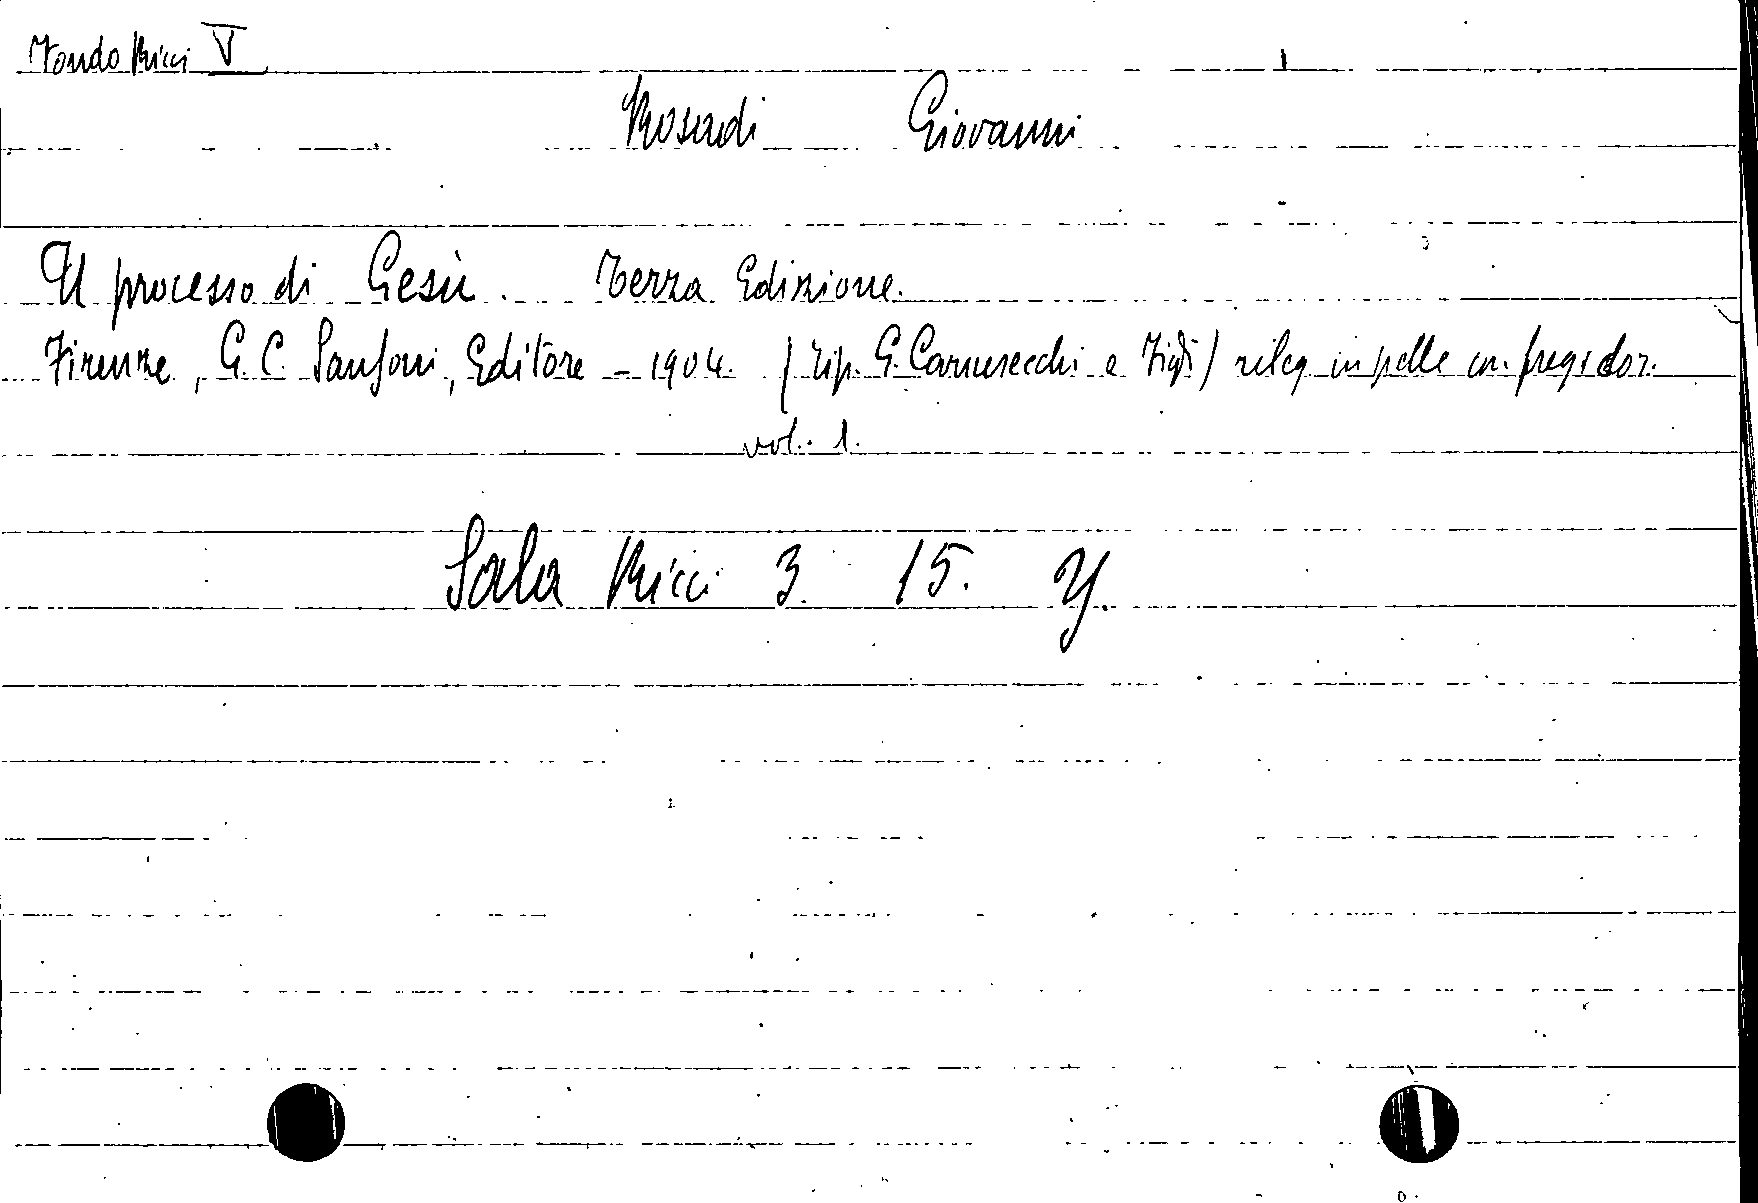 Fondo Ricci V
Rosadi Giovanni
Il processo di Gesù. Terza Edizione.
Firenze, G. C. Sansoni, Editore - 1904. (tip. G. Carnesecchi e Figli) rileg in pelle con fregi dor.
vol. 1.
Sala Ricci 3. 15. Y.